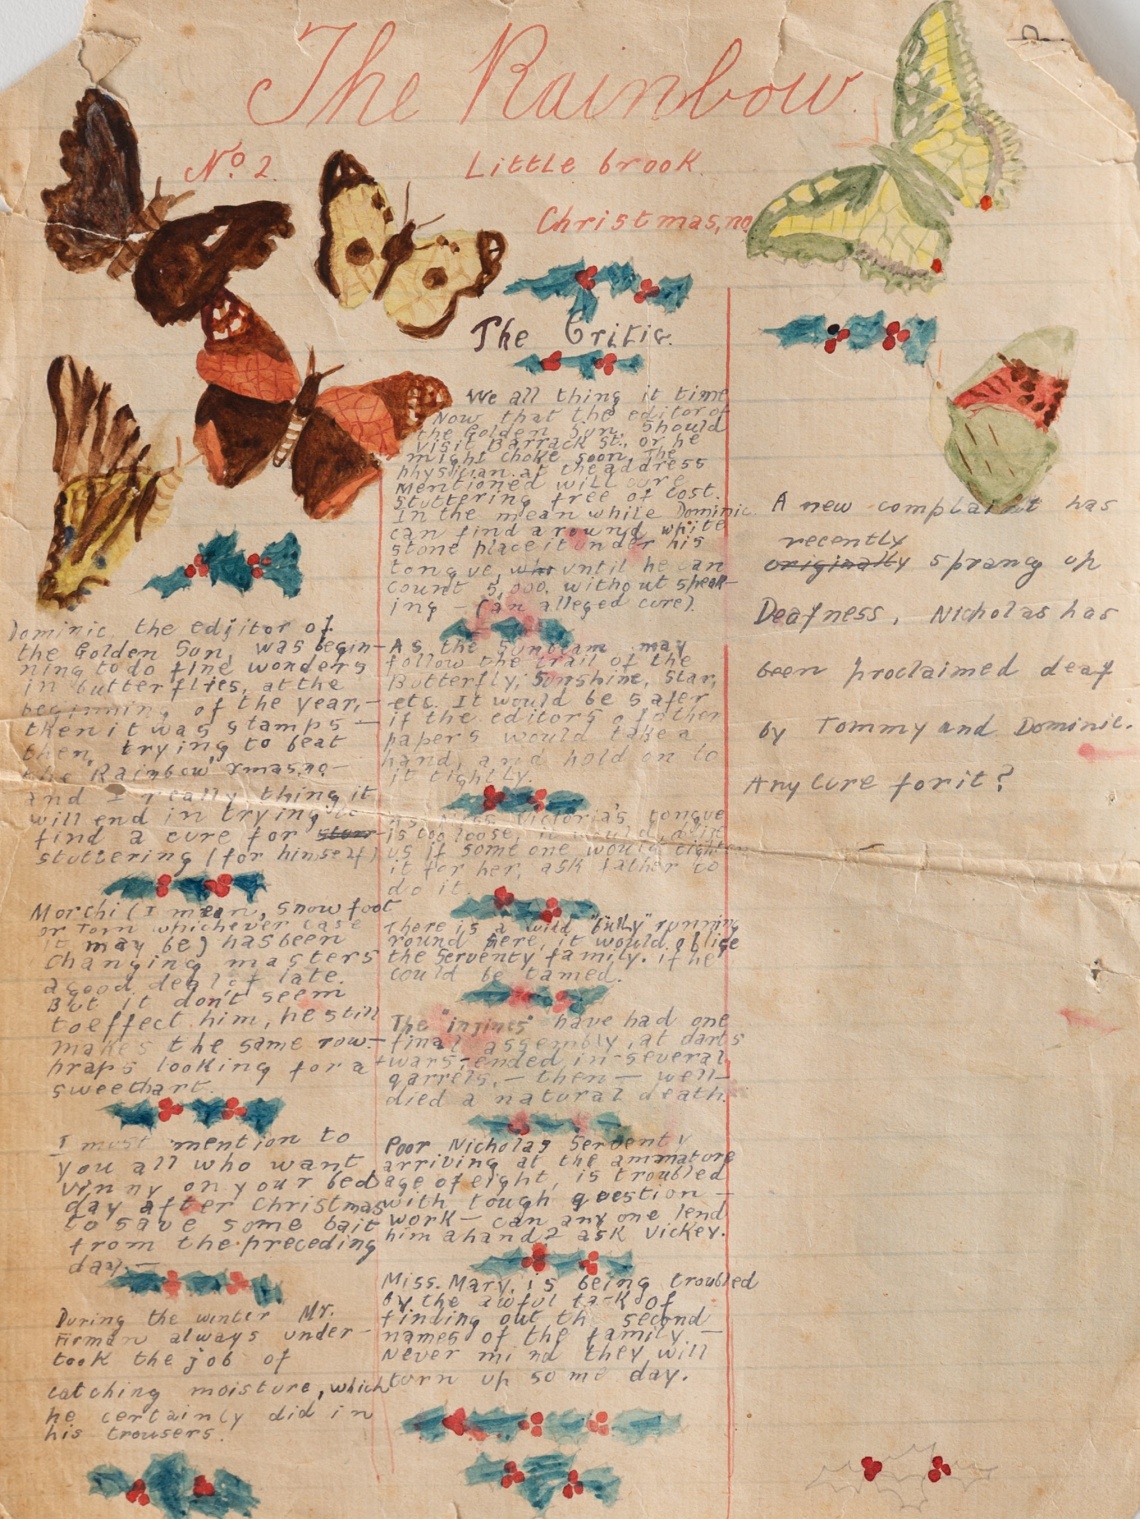 The Rainbow.
No. 2.
Little brook.
Christmas, no
2.
Dominic, the editor of
the Golden Sun, was begin-
ning to do fine wonders
in butterflies, at the
beginning of the year,-
then it was stamps -
then, trying to beat
the 'Rainbow' xmas,no-
and I really thing it
will end in trying to
find a cure for
stuttering (for himself)
Morchi (I mean, snow foot
or Tom whichever case
it may be) has been
changing masters
a good deal of late.
But it don't seem
to effect him, he still
makes the same row.-
praps looking for a
sweethart.
I must mention to
you all who want
Vinny on your bed
day after Christmas
to save some bait
from the preceding
day.-
During the winter Mr.
Firman always under-
took the job of
catching moisture, which
he certainly did in
his trousers.
The Critic.
We all thing it time
Now that the editor of
the Golden Sun. Should
visit Barrack St., or he
might choke soon. The
physician at the address
Mentioned will cure
Stuttering free of cost.
In the mean while Dominic
can find a round white
stone place it under his
tongue, until he can
count 5,000. without speak-
ing - (an alleged cure).
As the Sunbeam may
follow the trail of the
Butterfly, Sunshine, Star,
ets. It would be safer
if the editors of other
papers would take a
hand, and hold on to
it tightly.
As Miss Victoria's tongue
is too loose, it would,
us if some one would tighten
it for her, ask father to
do it.
There is a wild "billy" running
round here, it would oblige
the Serventy family. if he
could be tamed.
The "injines" have had one
final assembly, at darts
wars-ended in-several
qarrels,- then - well-
died a natural death.
Poor Nicholas Serventy
arriving at the ammature
age of eight, is troubled
with tough question -
work - can any one lend
him a hand? ask Vickey.
Miss. Mary, is being troubled
by the awful task of
finding out the second
names of the family -
Never mind they will
turn up some day.
A new complaint has
recently
originally sprang up
Deafness, Nicholas has
been proclaimed deaf
by Tommy and Dominic.
Any Cure for it?